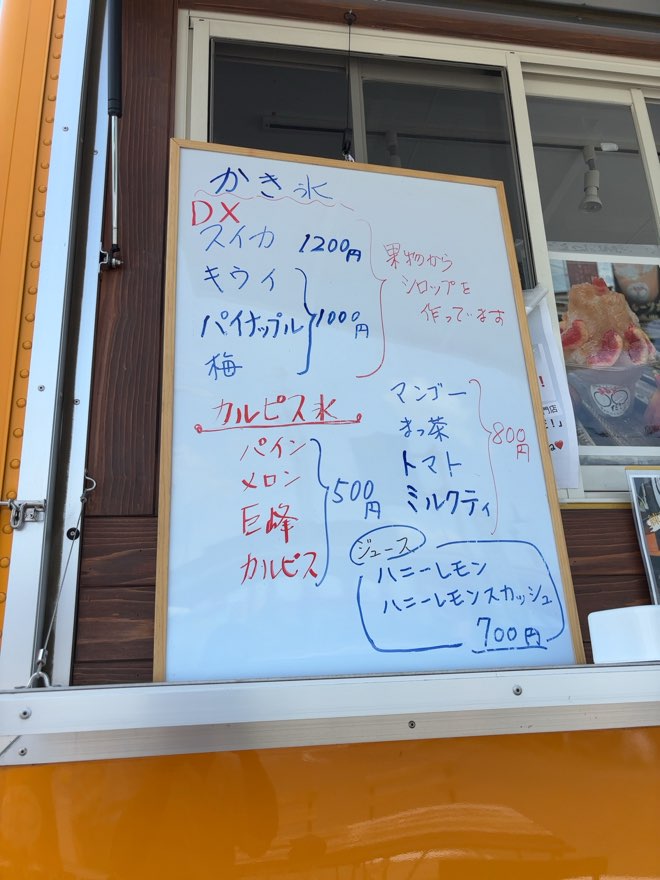 かき氷
DX
スイカ 1200円
キウイ
パイナップル 1000円
梅
果物から
シロップを
作っています
カルピス氷
パイン
メロン
巨峰
カルピス
500円
マンゴー
まっ茶
トマト
ミルクティ
800円
ジュース
ハニーレモン
ハニーレモンスカッシュ
700円